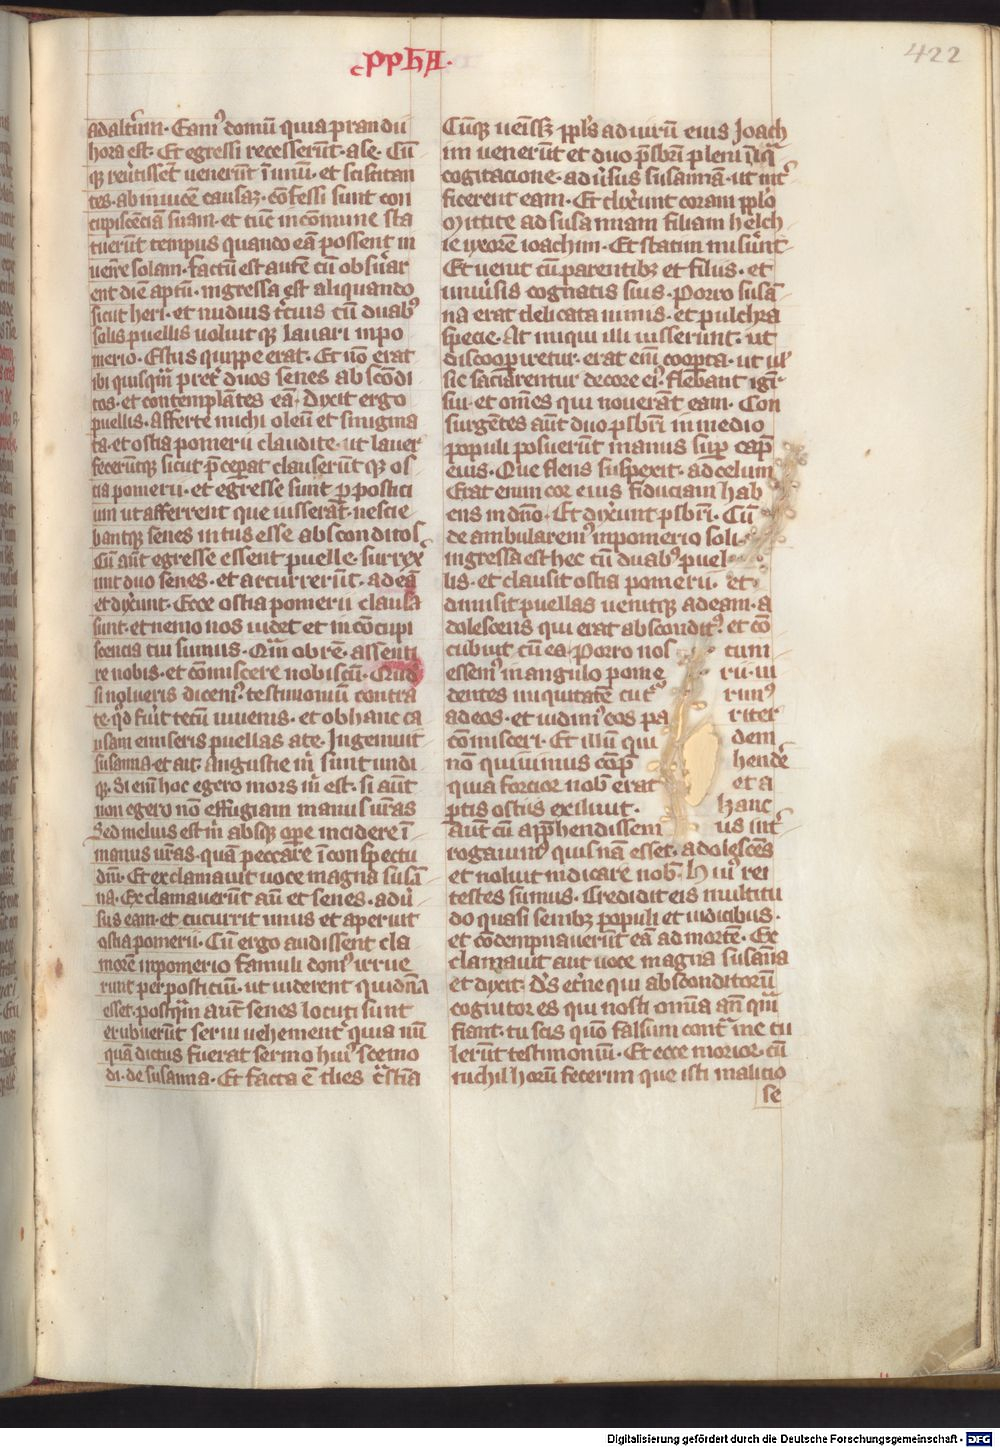 ꝓphA·
422
ad altĩm· Eam᷒ domū quia prandii
hora est· Et egressi recesserūt· a se· Cū
qꝫ reũtissēt venerūt ī unū· et sciscitan
tes· ab inuicē causaꝫ· cōfessi sunt con
cupiscēciam suam· et tūc in comune sta
tuerūt tempus quando eā possent in
uenire solam· factū est autē cū obs̃uar
ent diē aptū· ingressa est aliquando
sicut heri· et nudius t̃cius cū duab᷒
solis puellis voluit qꝫ lauari in po
merio· Estus quippe erat· Et nō erat
ibi quisqm̃ pret̃ duos senes abscōdi
tos· et contemplātes eā· dixit ergo
puellis· Afferte michi oleū et smigma
ta· et ostia pomerii claudite· ut lauer
fecerūtqꝫ sicut p̃ceperat clauserūt qꝫ os
tia pomerii· et egr̃esse sunt ꝑ postici
um ut afferrent que iusserat· nescie
bantqꝫ senes intus esse absconditos
Cū aūt egresse essent puelle· surrex̃
unt duo senes· et accurrerūt· ad eā
et dix̃unt· Ecce ostia pomerii clausa
sunt· et nemo nos uidet et in cōcupi
scencia tui sumus· Qm̃ ob rē· assenti
re nobis· et cōmiscere nobiscū· Quod
si nolueris dicem᷒ testimoniū contra
te· qd̃ fũit tecū iuuenis· et ob hanc ca
usam emiseris puellas a te· Ingemuit
susanna· et ait· Angustie m̃ sunt undi
qꝫ· Si em̄ hoc egero mors m̃ est· si aūt
non egero nō effugiam manus ũras
Sed melius est m̃ absqꝫ opere incidere ī
manus ũras· quā peccare ī conspectu
dn̄i· Et exclamauit uoce magna susā
na· Exclamauerūt aūt et senes· adũ
sus eam· et cucurrit unus et aperuit
ostia pomerii· Cū ergo audissent cla
morē in pomerio famuli dom᷒ irrue
runt per posticiū· ut uiderent quidnā
esset· postqm̃ aūt senes locuti sunt
erubuerūt serui uehement̃ quia nū
quā dictus fuerat sermo hui᷒ scemo
di· de susanna· Et facta ē dies c̃stīa
Cūqꝫ uenissꝫ ppl̃s ad uirū eius Joach
im venerūt et duo p̃sbr̃i pleni iniq̃
cogitacione· adũsus susannā· ut int̃
ficerent eam· Et dix̃unt coram pplo
Mittite ad susannam filiam helch
ie uxorē ioachim· Et statim mis̃unt
Et uenit cū parentibꝫ et filiis· et
uniũsis cognatis suis· Porro susā
na erat delicata nimis· et pulchra
specie· At iniqui illi iusserunt· ut
discooperiretur· erat em̄ coopta· ut uł
sic saciarentur decore ei᷒· flebant igr̃
sui· et om̄es qui nouerāt eam· Con
surgētes aūt duo p̃sbr̃i in medio
populi posuerūt manus sup cap̃
eius· Que flens suspexit· ad celum
Erat enim cor eius fiduciam hab
ens in dn̄o· Et dix̃unt p̃sbr̃i· Cū
deambularem᷒ in pomerio soli·
ingressa est hec cū duab᷒ puel
lis· et clausit ostia pomerii· et
dimisit puellas uenitqꝫ ad eam· a
dolescens qui erat abscondit᷒· et cō
cubuit cū ea· Porro nos cum
essem᷒ in angulo pome rii· ui
dentes iniquitatē cur̃ rim᷒
ad eos· et uidim᷒ eos pa riter
cōmisceri· Et illū qui dem
nō quiuimus cōp̃ hend̃e
quia forcior nob̄ erat et a
ꝑtis ostiis exiliuit· hanc
aūt cū app̃hendissem us int̃
rogauim᷒ quis nā esset· adolescēs
et noluit indicare nob̄· Hui᷒ rei
testes sumus· Credidit eis multitu
do quasi senibꝫ populi et iudicibus·
et cōdempnauerūt eā ad mortē· Ex
clamauit aut uoce magna susanna
et dixit· Ds̃ et̃ne qui absconditorū
cognitor es qui nosti omīa añ qm̃
fiant· tu scis quō falsum cont̃ me tu
lerūt testimoniū· Et ecce morior· cū
nichil horū fecerim que isti malicio
se
Digitalisierung gefördert durch die Deutsche Forschungsgemeinschaft - DFG